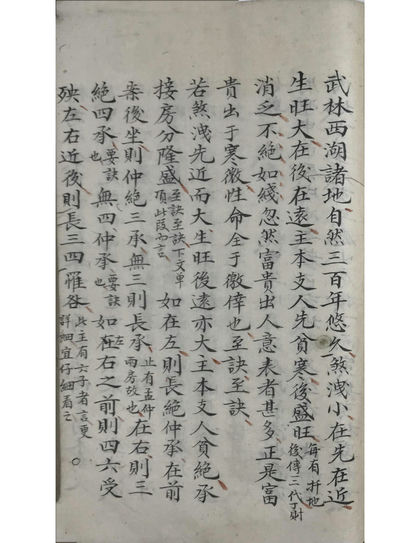 武林西湖諸地自然三百年悠久煞洩小在先在近
生旺大在後在遠主本支人先貧寒後盛旺每有扞地後傳三代丁財
消乏不絕如綫忽然富貴出人意表者甚多正是富
貴出于寒微性命全于徼倖也至訣至訣
若煞洩先近而大生旺後遠亦大主本支人貧絕承
接房分隆盛至訣至訣下文單頂此段而言如在左則長絕仲承在前
案後坐則仲絕三承無三則長承止有孟仲兩房故也在右則三
絕四承要訣也無四仲承要訣也如在左右之前則四六受
殃左右近後則長三四罹咎此主有六子者言更詳細宜仔細看之